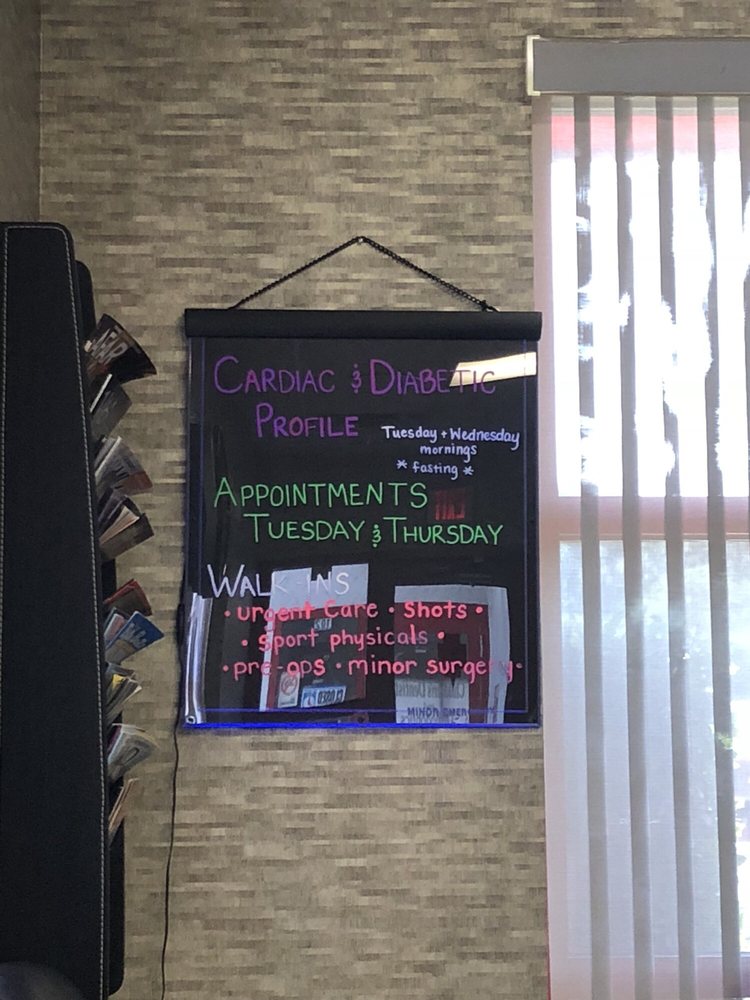 CARDIAC & DIABETIC
PROFILE
Tuesday + Wednesday
mornings
* fasting *
APPOINTMENTS
TUESDAY & THURSDAY
WALK-INS
• urgent care • shots •
• sport physicals •
• pre-ops • minor surgery •